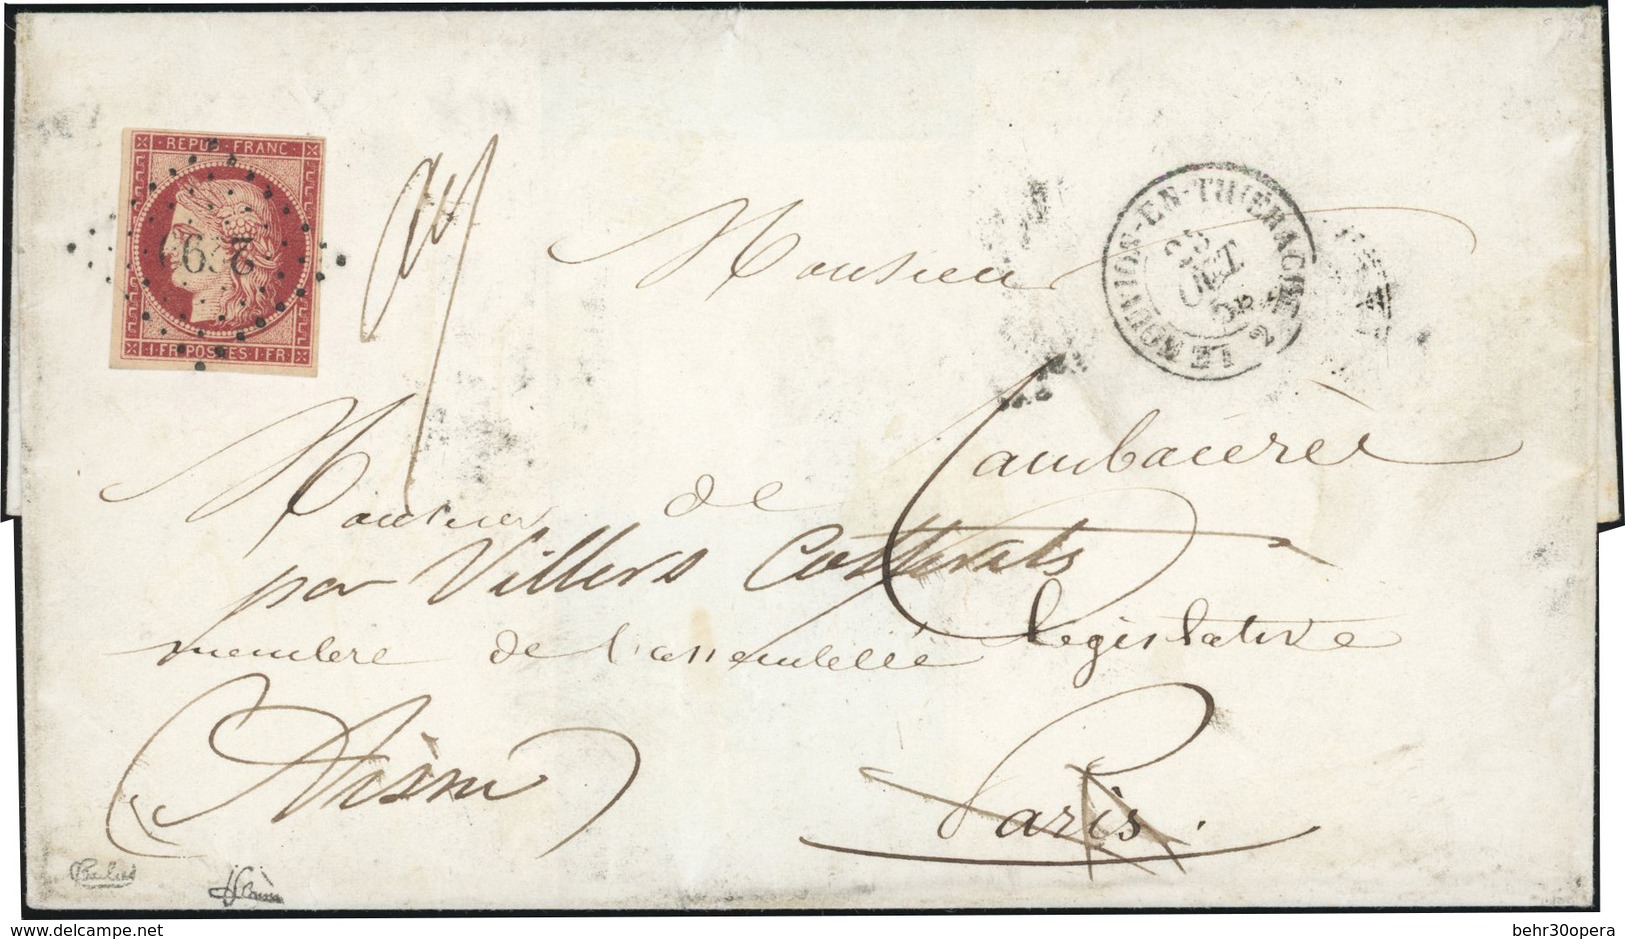 REPUB · FRANC
1 · FR · POSTES · 1 · FR
LE NOUVION-EN-THIÉRACHE
2
Monsieur
Monsieur de Cambacérès
par Villers Cotterets
membre de l'assemblée législative
(Aisne)
Paris.
behr30opera
delcampe.net